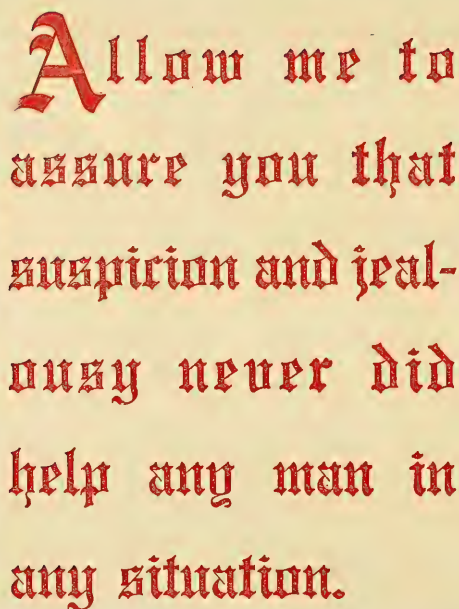 Allow me to
assure you that
suspicion and jeal-
ousy never did
help any man in
any situation.